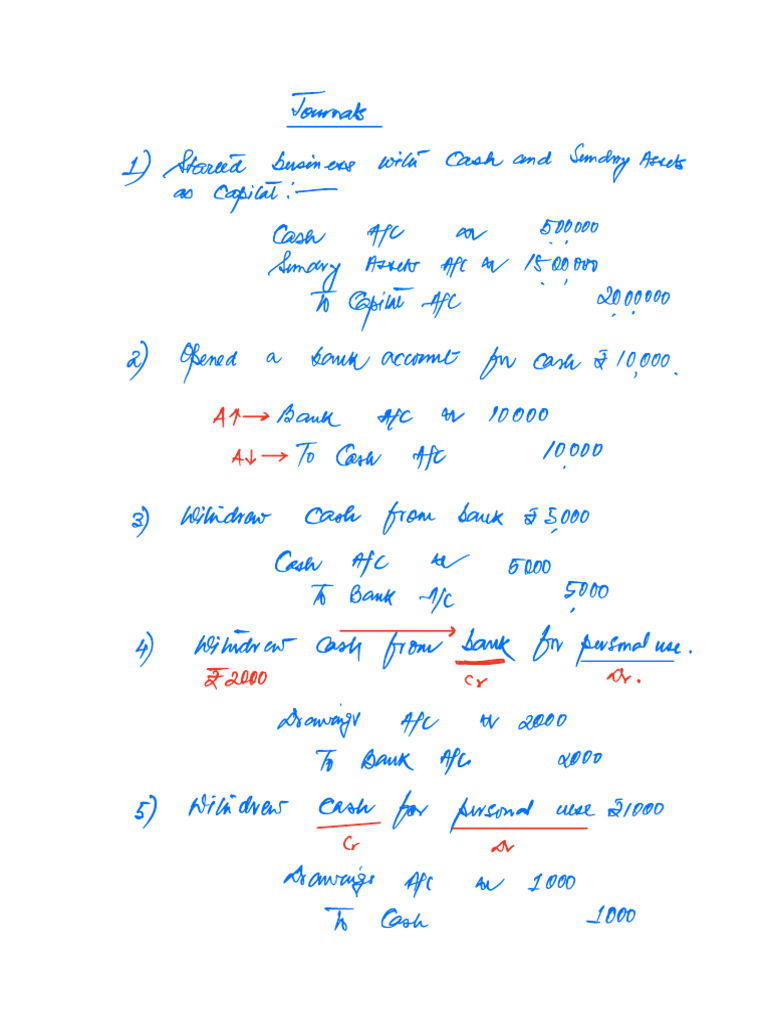 Journals
1) Started business with Cash and Sundry Assets
as Capital:—
Cash A/C Dr 500000
Sundry Assets A/C Dr 1500000
To Capital A/C 2000000
2) Opened a bank account for cash ₹ 10,000.
A↑→ Bank A/C Dr 10000
A↓→ To Cash A/C 10,000
3) Withdrew Cash from bank ₹ 5,000
Cash A/C Dr 5000
To Bank A/C 5000
4) Withdrew Cash from bank for personal use.
₹ 2000 Cr Dr.
Drawings A/C Dr 2000
To Bank A/C 2000
5) Withdrew Cash for personal use ₹1000
Cr Dr
Drawings A/C Dr 1000
To Cash 1000